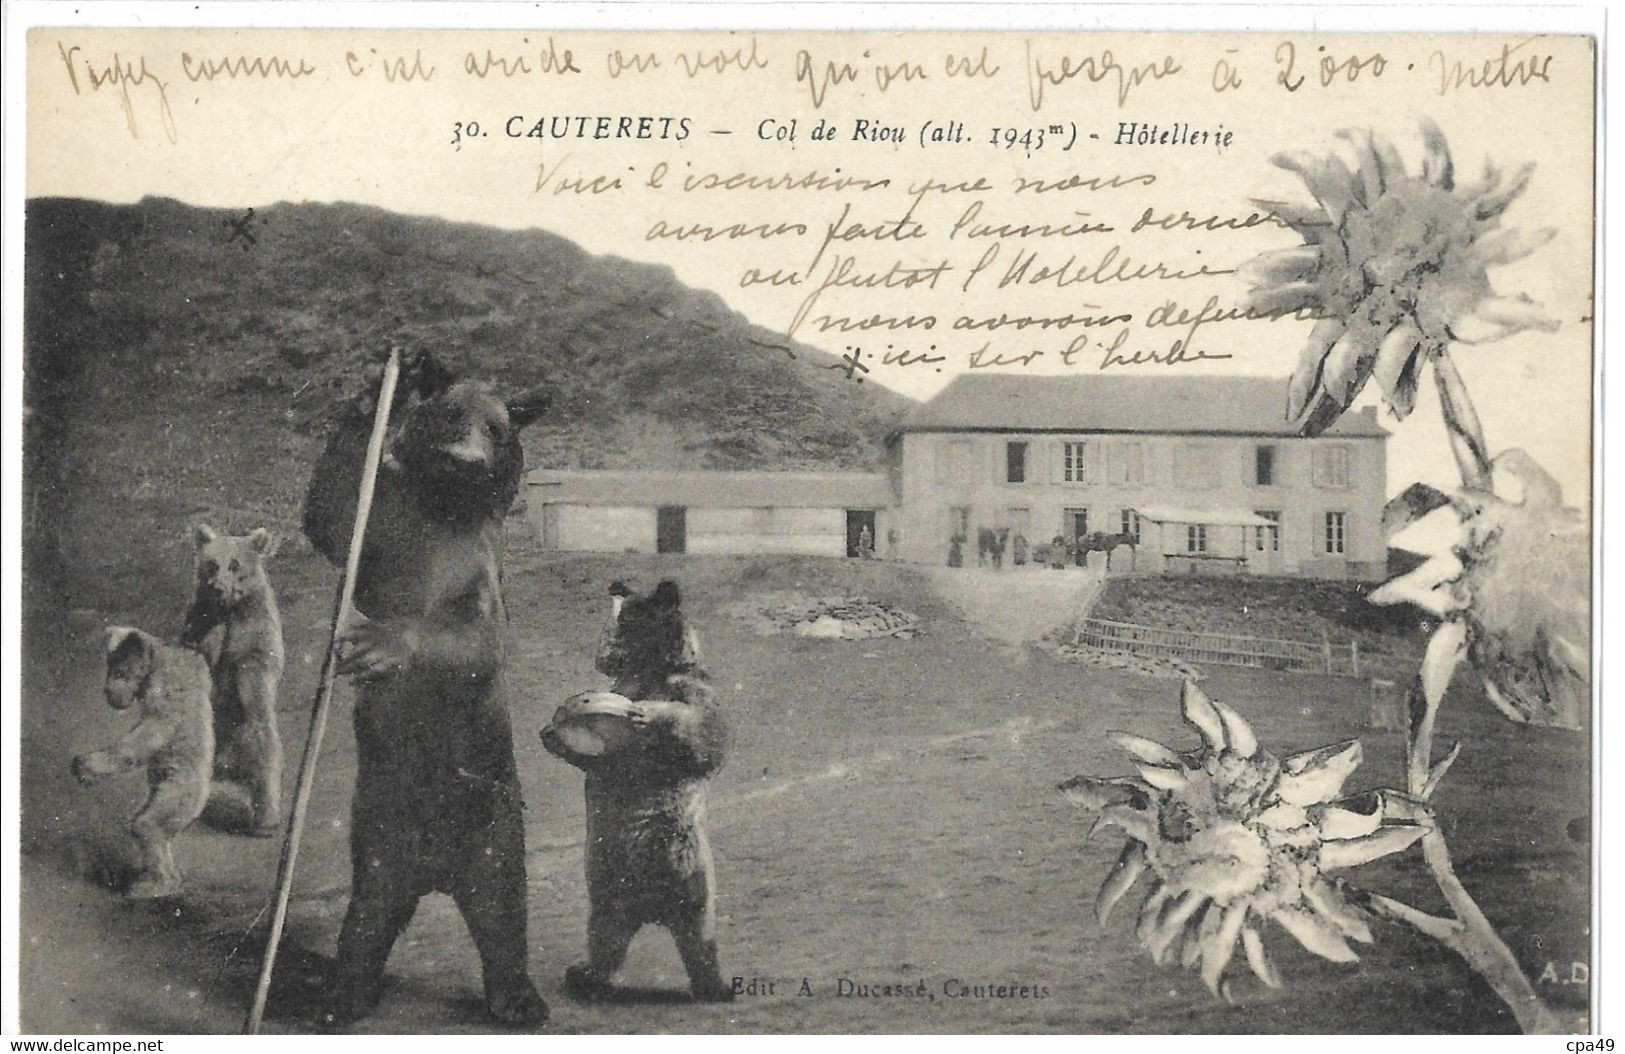 Voyez comme c'est aride on voit qu'on est presque à 2000. metres
30. CAUTERETS — Col de Riou (alt. 1943m) - Hôtellerie
Voici l'iscursion que nous
avrons faite l'année dernière
ou plutot l'Hotellerie
nous avorons dejeuné
ici sur l'herbe
Edit. A Ducassé, Cauterets
A.D
www.delcampe.net
cpa49